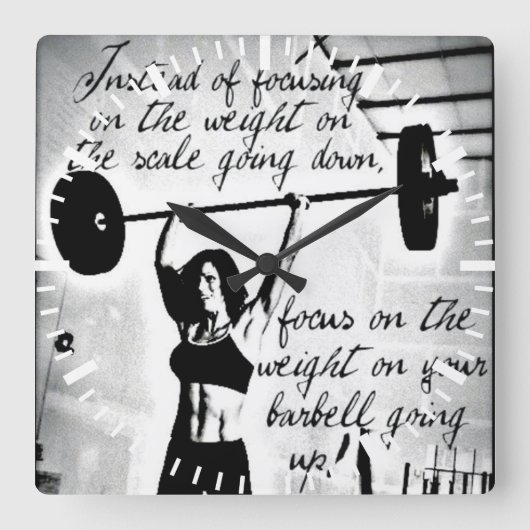 Instead of focusing
on the weight on
the scale going down,
focus on the
weight on your
barbell going
up!